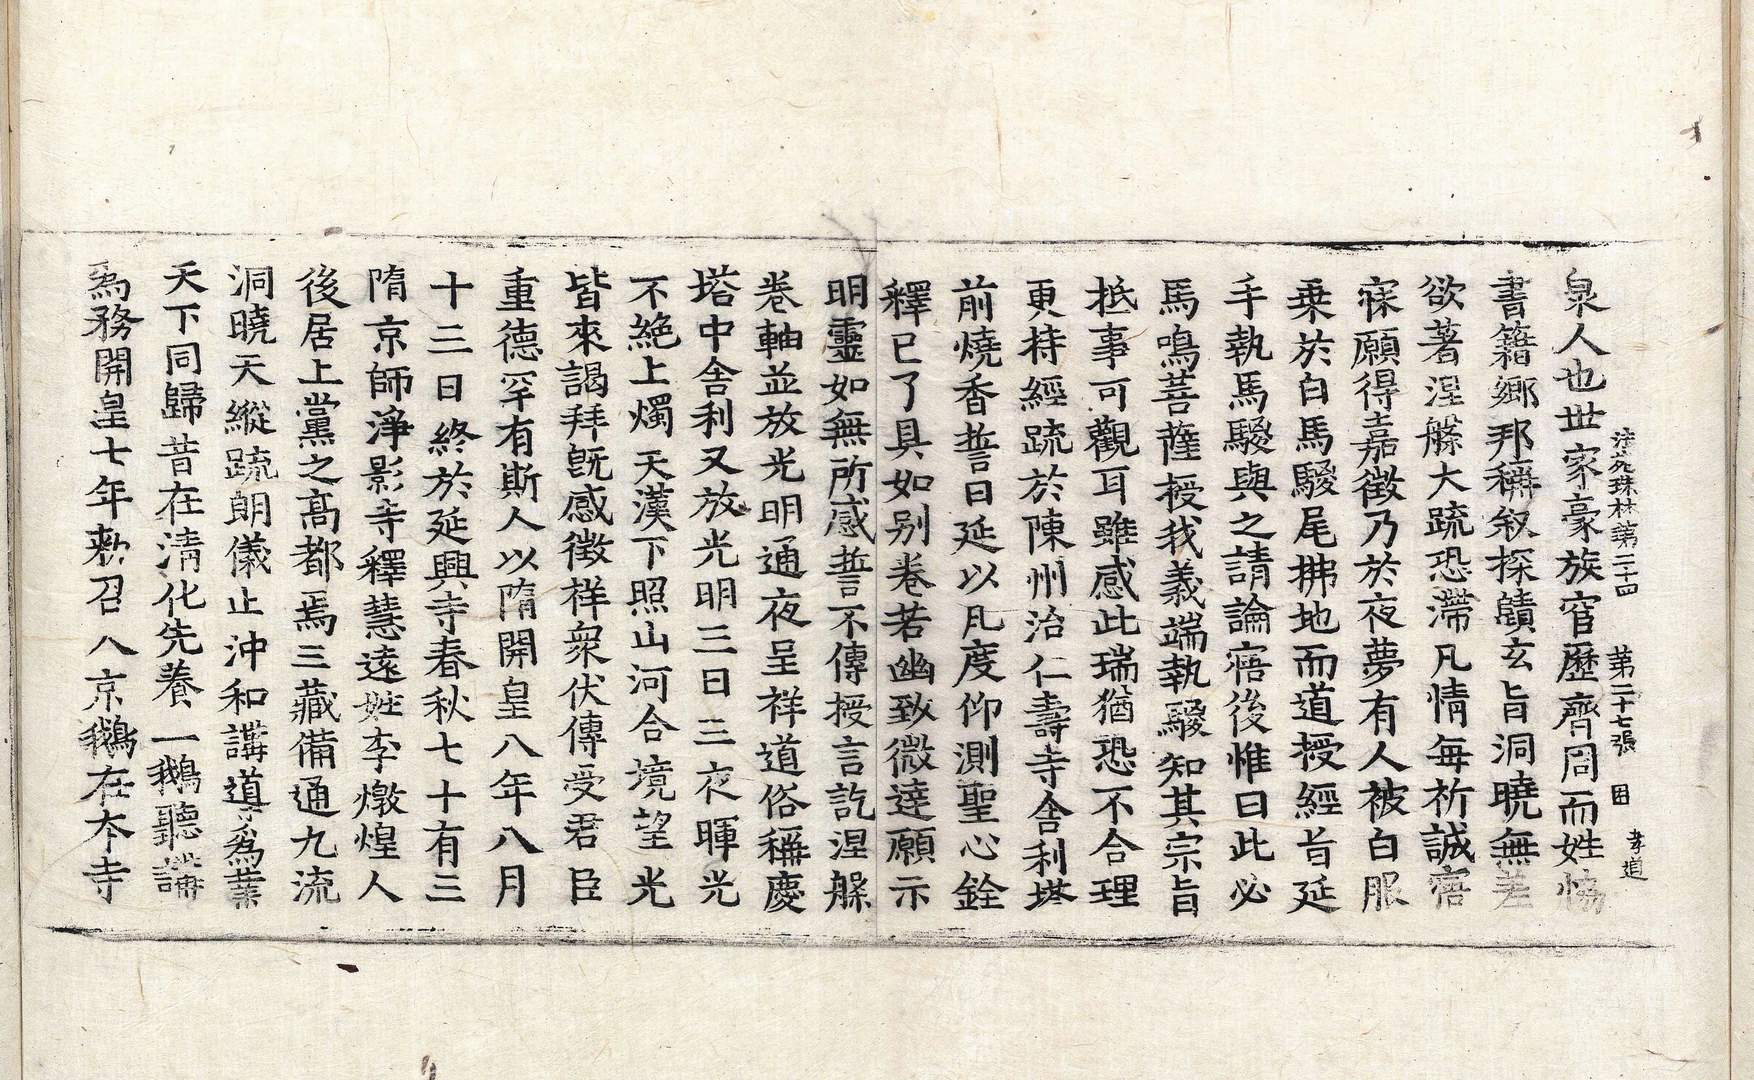 法苑珠林第二十四　第二十七張　囯　孝道
泉人也世家豪族官歷齊周而姓恊
書籍鄉邦稱叙探賾玄旨洞曉無差
欲著涅槃大疏恐滯凡情每祈誠寤
寐願得嘉徵乃於夜夢有人被白服
乗於白馬騣尾拂地而道授經旨延
手執馬騣與之請論寤後惟曰此必
馬鳴菩薩授我義端執騣知其宗旨
抵事可觀耳雖感此瑞猶恐不合理
更持經疏於陳州治仁壽寺舍利塔
前燒香誓曰延以凡度仰測聖心銓
釋已了具如别卷若幽致微達願示
明靈如無所感誓不傳授言訖涅槃
卷軸並放光明通夜呈祥道俗稱慶
塔中舍利又放光明三日三夜暉光
不絶上燭天漢下照山河合境望光
皆來謁拜旣感徵祥衆伏傳受君臣
重德罕有斯人以隋開皇八年八月
十三日終於延興寺春秋七十有三
隋京師淨影寺釋慧遠姓李燉煌人
後居上黨之高都焉三藏備通九流
洞曉天縱疏朗儀止沖和講導爲業
天下同歸昔在清化先養一鵝聽講
爲務開皇七年勑召入京鵝在夲寺